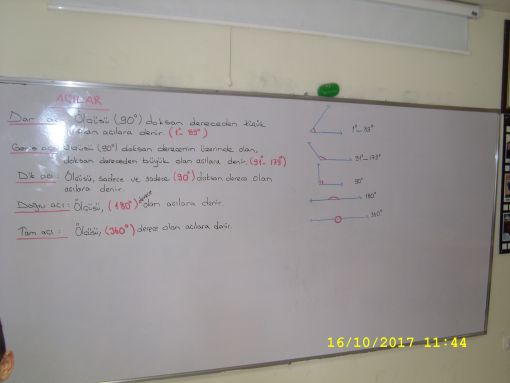 AÇILAR
Dar açı: Ölçüsü (90°) doksan dereceden küçük
olan açılara denir. (1°- 89°)
1°- 89°
Geniş açı: Ölçüsü (90°) doksan derecenin üzerinde olan,
doksan dereceden büyük olan açılara denir. (91°- 179°)
91°- 179°
Dik açı: Ölçüsü, sadece ve sadece (90°) doksan derece olan
açılara denir.
90°
Doğru açı: Ölçüsü, (180°) derece olan açılara denir.
180°
Tam açı: Ölçüsü, (360°) derece olan açılara denir.
360°
16/10/2017 11:44